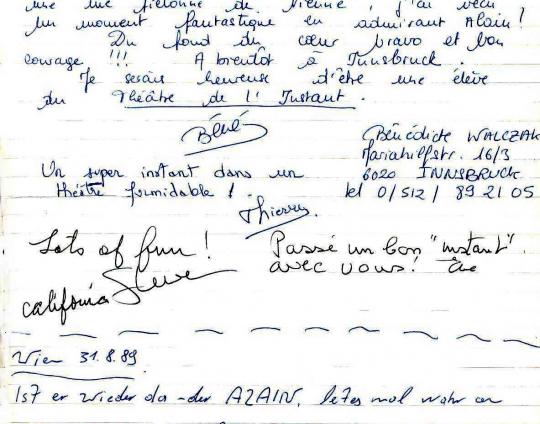 une rue piétonne de Vienne, j'ai vécu
un moment fantastique en admirant Alain !
Du fond du cœur bravo et bon
courage !!! A bientôt à Innsbruck.
Je serais heureuse d'être une élève
du Théâtre de l'Instant.
Béné
Bénédicte WALCZAK
Mariahilfstr. 16/3
6020 INNSBRUCK
tel 0/512/ 89 21 05
Un super instant dans un
théâtre formidable !
Thierry
Lots of fun !
Steve
california
Passé un bon "instant"
avec vous !
Wien 31.8.89
Ist er wieder da - der ALAIN, letes mal wahr er